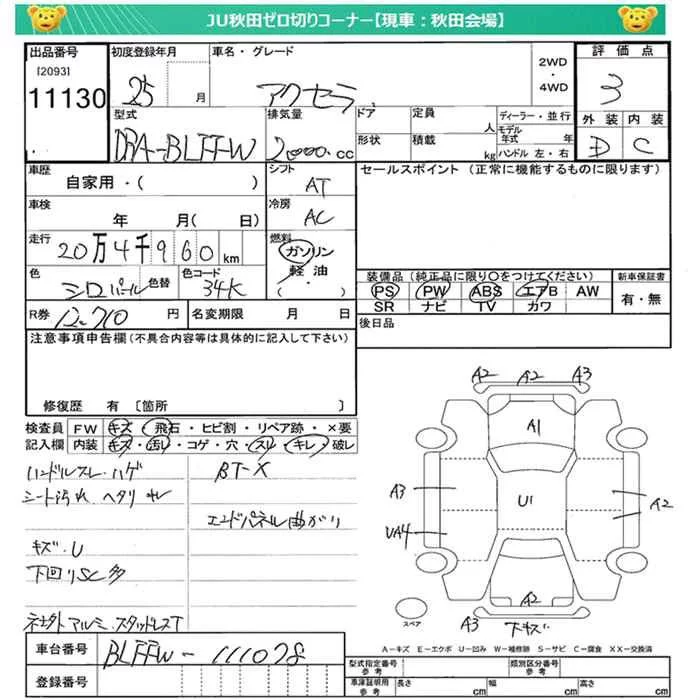 JU秋田ゼロ切りコーナー【現車：秋田会場】
出品番号 初度登録年月 車名・グレード 評価点
[2093] 11130 25 月 アクセラ 2WD ・ 4WD 3
型式 排気量 ドア 定員 人 ディーラー・並行 外装 内装
DBA-BLFFW 2000.cc 形状 積載 kg モデル年式 年 ハンドル 左・右 D C
車歴 シフト セールスポイント (正常に機能するものに限ります)
自家用・( ) AT
車検 冷房
年 月( 日) AC
走行 燃料
20万4千960km ガソリン
軽油
色 色替 色コード 装備品 (純正品に限り○をつけてください) 新車保証書
シロパール 34K PS PW ABS エアB AW 有・無
SR ナビ TV カワ
R券 12.710 円 名変期限 月 日 後日品
注意事項申告欄 (不具合内容等は具体的に記入して下さい)
修復歴 有 〔箇所 〕
検査員 FW キズ・飛石・ヒビ割・リペア跡・×要
記入欄 内装 キズ・汚れ・コゲ・穴・スレ・キレ・破レ
ハンドルスレ・ハゲ BT-X
シート汚れ ヘタリ キレ
エンドパネル曲がり
キズ・U
下回りSC多
社外アルミ・スタッドレスT
A2 A2 A3
A1
A3 U1 A2
UA4
A2
スペア A3 下キズ
A－キズ E－エクボ U－凹み W－補修跡 S－サビ C－腐食 XX－交換済
車台番号 BLFFW-111078
登録番号
型式指定番号 参考 類別区分番号 参考
車庫証明用 参考 長さ cm 幅 cm 高さ cm